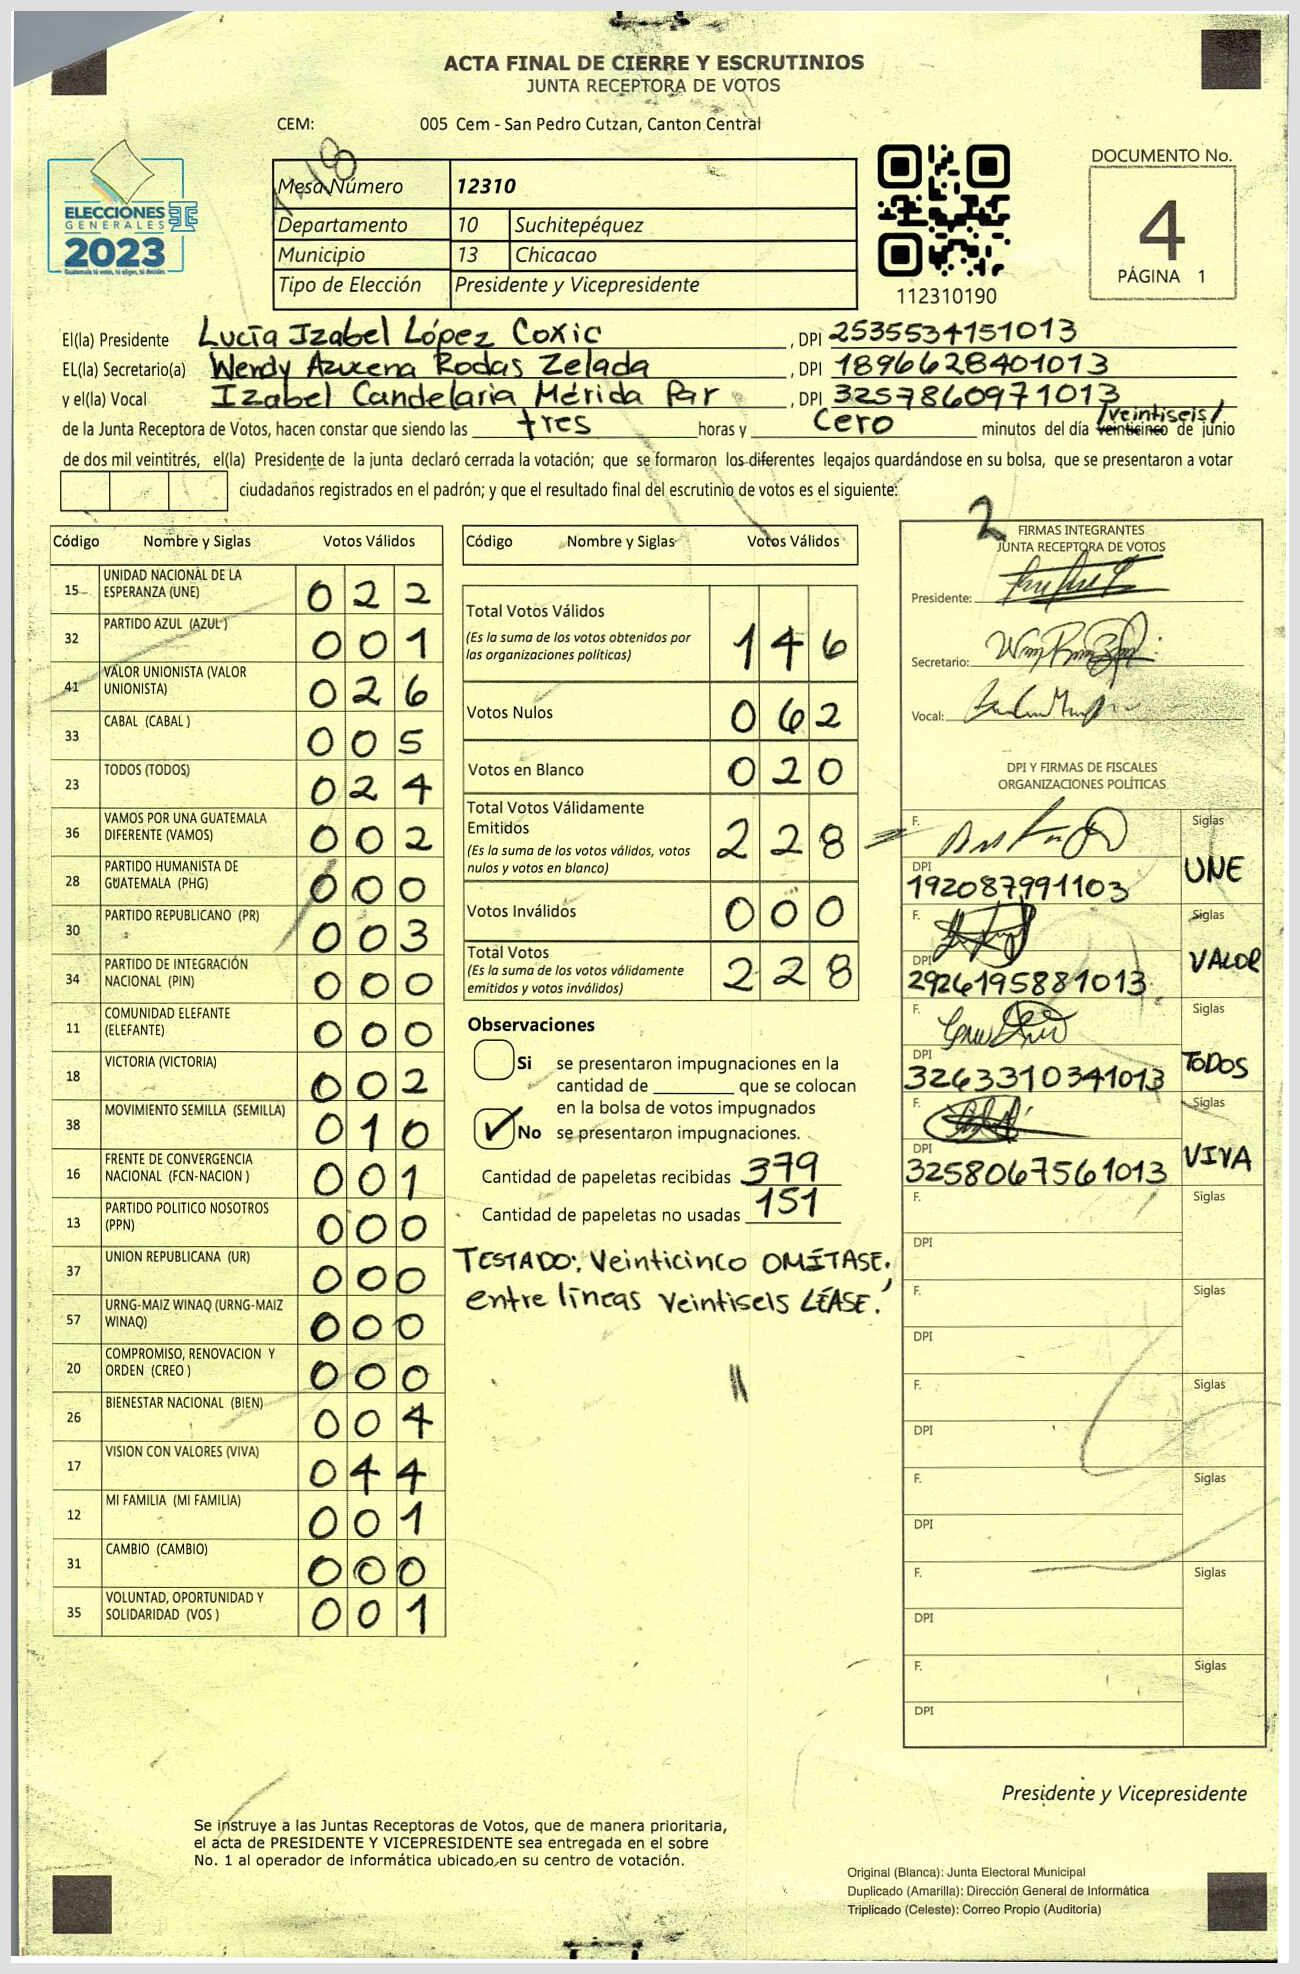 ACTA FINAL DE CIERRE Y ESCRUTINIOS
JUNTA RECEPTORA DE VOTOS
CEM: 005 Cem - San Pedro Cutzan, Canton Central
ELECCIONES
GENERALES
2023
Guatemala tú votas, tú eliges, tú decides
Mesa Número 12310
Departamento 10 Suchitepéquez
Municipio 13 Chicacao
Tipo de Elección Presidente y Vicepresidente
112310190
DOCUMENTO No.
4
PÁGINA 1
El(la) Presidente Lucía Izabel López Coxic , DPI 2535534151013
EL(la) Secretario(a) Wendy Azucena Rodas Zelada , DPI 1896628401013
y el(la) Vocal Izabel Candelaria Mérida Par , DPI 3257860971013
/veintiseis/
de la Junta Receptora de Votos, hacen constar que siendo las tres horas y Cero minutos del día veinticinco de junio
de dos mil veintitrés, el(la) Presidente de la junta declaró cerrada la votación; que se formaron los diferentes legajos guardándose en su bolsa, que se presentaron a votar
ciudadaños registrados en el padrón; y que el resultado final del escrutinio de votos es el siguiente:
Código Nombre y Siglas Votos Válidos
15 UNIDAD NACIONAL DE LA ESPERANZA (UNE) 022
32 PARTIDO AZUL (AZUL) 001
41 VALOR UNIONISTA (VALOR UNIONISTA) 026
33 CABAL (CABAL ) 005
23 TODOS (TODOS) 024
36 VAMOS POR UNA GUATEMALA DIFERENTE (VAMOS) 002
28 PARTIDO HUMANISTA DE GUATEMALA (PHG) 000
30 PARTIDO REPUBLICANO (PR) 003
34 PARTIDO DE INTEGRACIÓN NACIONAL (PIN) 000
11 COMUNIDAD ELEFANTE (ELEFANTE) 000
18 VICTORIA (VICTORIA) 002
38 MOVIMIENTO SEMILLA (SEMILLA) 010
16 FRENTE DE CONVERGENCIA NACIONAL (FCN-NACION ) 001
13 PARTIDO POLITICO NOSOTROS (PPN) 000
37 UNION REPUBLICANA (UR) 000
57 URNG-MAIZ WINAQ (URNG-MAIZ WINAQ) 000
20 COMPROMISO, RENOVACION Y ORDEN (CREO ) 000
26 BIENESTAR NACIONAL (BIEN) 004
17 VISION CON VALORES (VIVA) 044
12 MI FAMILIA (MI FAMILIA) 001
31 CAMBIO (CAMBIO) 000
35 VOLUNTAD, OPORTUNIDAD Y SOLIDARIDAD (VOS ) 001
Código Nombre y Siglas Votos Válidos
Total Votos Válidos 146
(Es la suma de los votos obtenidos por
las organizaciones políticas)
Votos Nulos 062
Votos en Blanco 020
Total Votos Válidamente
Emitidos 228
(Es la suma de los votos válidos, votos
nulos y votos en blanco)
Votos Inválidos 000
Total Votos 228
(Es la suma de los votos válidamente
emitidos y votos inválidos)
Observaciones
Si se presentaron impugnaciones en la
cantidad de que se colocan
en la bolsa de votos impugnados
No se presentaron impugnaciones.
Cantidad de papeletas recibidas 379
Cantidad de papeletas no usadas 151
TESTADO: Veinticinco OMÍTASE.
entre líneas veintiseis LÉASE.
2
FIRMAS INTEGRANTES
JUNTA RECEPTORA DE VOTOS
Presidente:
Secretario:
Vocal:
DPI Y FIRMAS DE FISCALES
ORGANIZACIONES POLÍTICAS
F. Siglas
DPI UNE
192087991103
F. Siglas
DPI VALOR
2926195881013
F. Siglas
DPI TODOS
3263310341013
F. Siglas
DPI VIVA
3258067561013
F. Siglas
DPI
F. Siglas
DPI
F. Siglas
DPI
F. Siglas
DPI
F. Siglas
DPI
F. Siglas
DPI
Presidente y Vicepresidente
Se instruye a las Juntas Receptoras de Votos, que de manera prioritaria,
el acta de PRESIDENTE Y VICEPRESIDENTE sea entregada en el sobre
No. 1 al operador de informática ubicado en su centro de votación.
Original (Blanca): Junta Electoral Municipal
Duplicado (Amarilla): Dirección General de Informática
Triplicado (Celeste): Correo Propio (Auditoría)